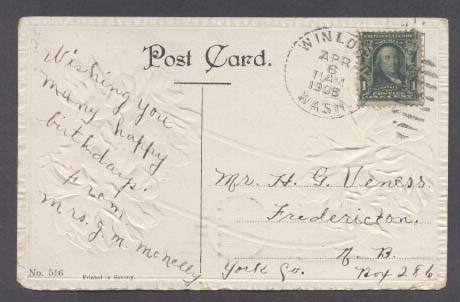 Post Card.
WINLO
APR
6
11 AM
1908
WASH
Wishing you
many happy
birthdays.
from
Mrs. J. M. McNelly
Mr. H. G. Veness.
Fredericton.
N. B.
York Co.
Box 286
No. 516
Printed in Saxony.